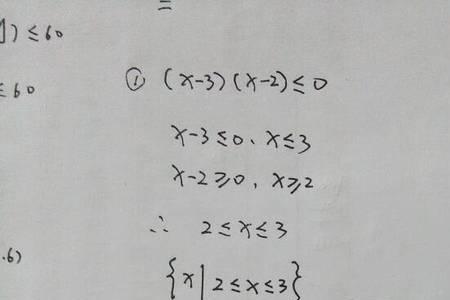 =
) ≤ 60
① (x-3)(x-2) ≤ 0
≤ 60
x-3 ≤ 0、x ≤ 3
x-2 ≥ 0、x ≥ 2
∴ 2 ≤ x ≤ 3
.6)
{x | 2 ≤ x ≤ 3}